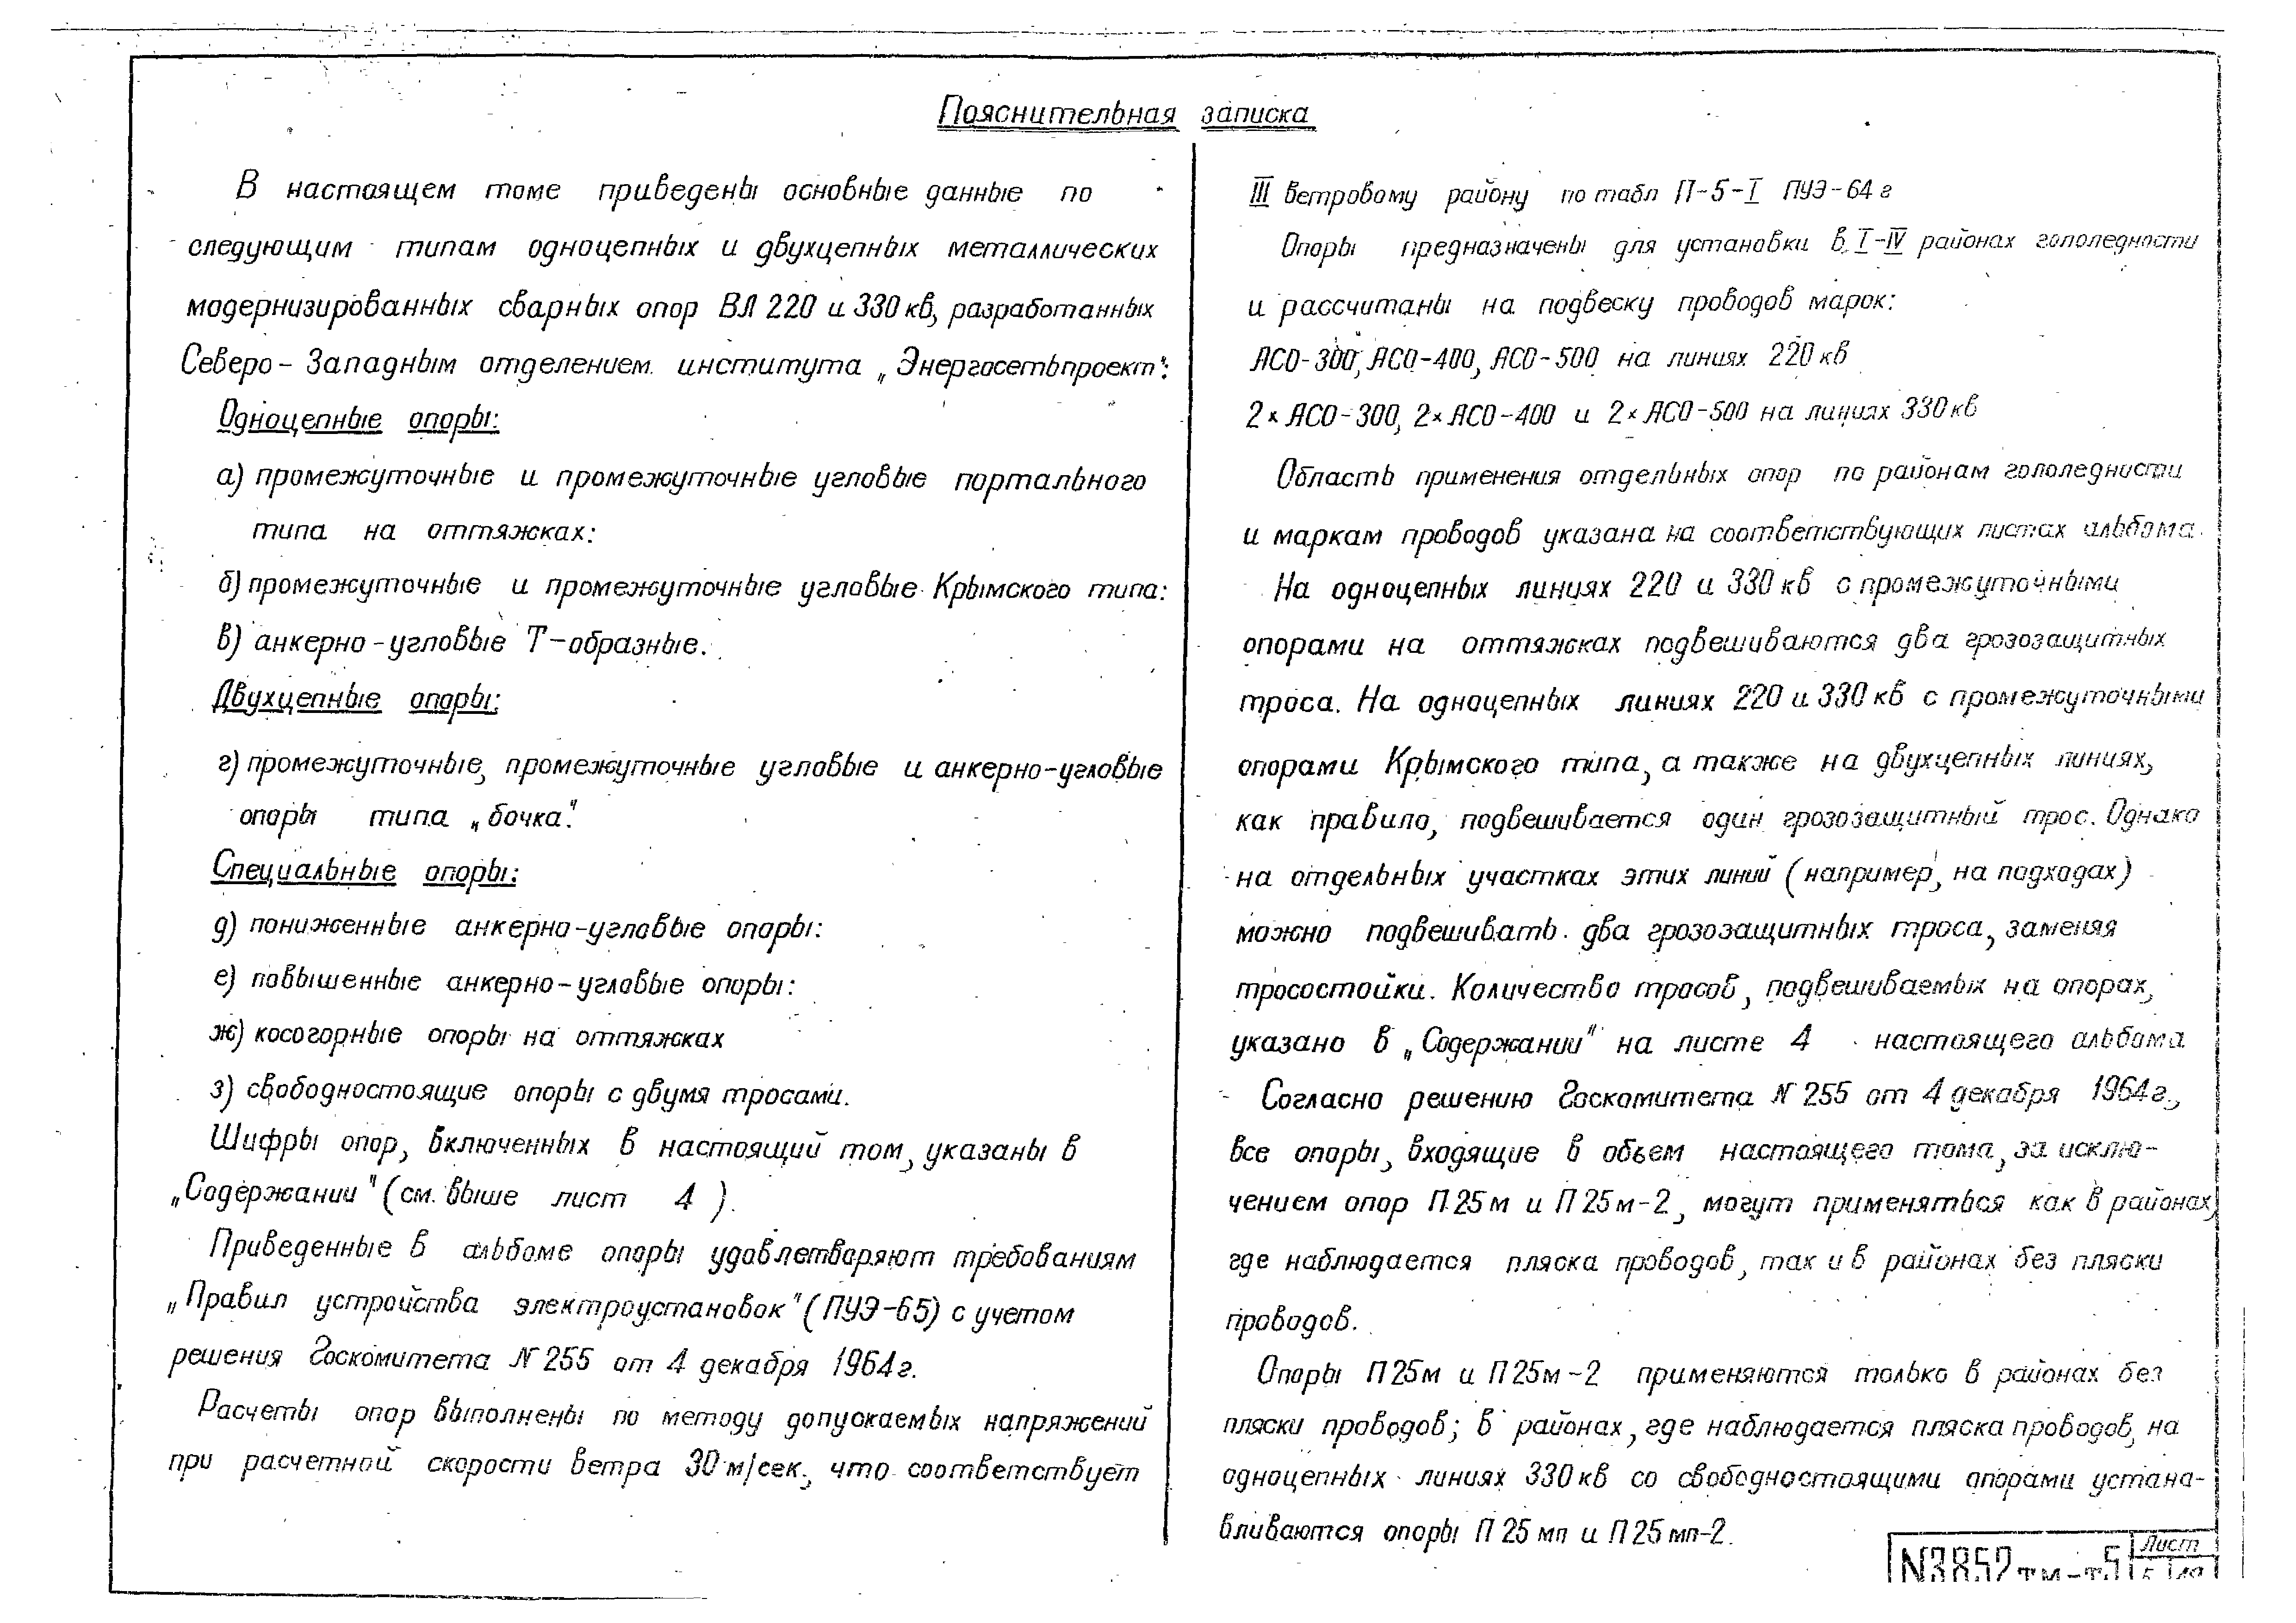 Пояснительная записка
В настоящем томе приведены основные данные по
следующим типам одноцепных и двухцепных металлических
модернизированных сварных опор ВЛ 220 и 330 кв, разработанных
Северо-Западным отделением института „Энергосетьпроект":
Одноцепные опоры:
а) промежуточные и промежуточные угловые портального
типа на оттяжках:
б) промежуточные и промежуточные угловые Крымского типа:
в) анкерно-угловые Т-образные.
Двухцепные опоры:
г) промежуточные, промежуточные угловые и анкерно-угловые
опоры типа „бочка".
Специальные опоры:
д) пониженные анкерно-угловые опоры:
е) повышенные анкерно-угловые опоры:
ж) косогорные опоры на оттяжках
з) свободностоящие опоры с двумя тросами.
Шифры опор, включенных в настоящий том, указаны в
„Содержании" (см. выше лист 4 ).
Приведенные в альбоме опоры удовлетворяют требованиям
„Правил устройства электроустановок" (ПУЭ-65) с учетом
решения Госкомитета N 255 от 4 декабря 1964г.
Расчеты опор выполнены по методу допускаемых напряжений
при расчетной скорости ветра 30 м/сек., что соответствует
III ветровому району по табл П-5-I ПУЭ-64 г
Опоры предназначены для установки в I-IV районах гололедности
и рассчитаны на подвеску проводов марок:
АСО-300, АСО-400, АСО-500 на линиях 220 кв
2×АСО-300, 2×АСО-400 и 2×АСО-500 на линиях 330 кв
Область применения отдельных опор по районам гололедности
и маркам проводов указана на соответствующих листах альбома.
На одноцепных линиях 220 и 330 кв с промежуточными
опорами на оттяжках подвешиваются два грозозащитных
троса. На одноцепных линиях 220 и 330 кв с промежуточными
опорами Крымского типа, а также на двухцепных линиях,
как правило, подвешивается один грозозащитный трос. Однако
на отдельных участках этих линий (например, на подходах)
можно подвешивать два грозозащитных троса, заменяя
тросостойки. Количество тросов, подвешиваемых на опорах,
указано в „Содержании" на листе 4 настоящего альбома
Согласно решению Госкомитета N 255 от 4 декабря 1964г.,
все опоры, входящие в объем настоящего тома, за исклю-
чением опор П25м и П25м-2, могут применяться как в районах,
где наблюдается пляска проводов, так и в районах без пляски
проводов.
Опоры П25м и П25м-2 применяются только в районах без
пляски проводов; в районах, где наблюдается пляска проводов, на
одноцепных линиях 330 кв со свободностоящими опорами устана-
вливаются опоры П25мп и П25мп-2.
Лист
N3852тм-т5